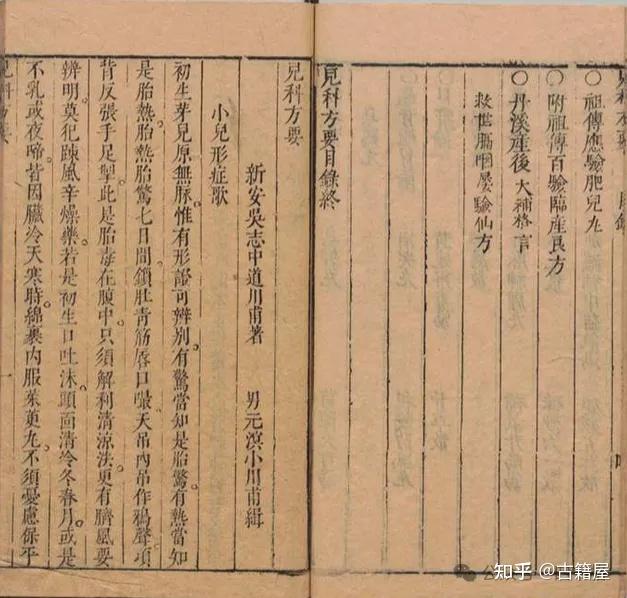 兒科方要 目錄
○祖傳應驗肥兒丸
○附祖傳百驗臨產良方
○丹溪產後大補格言
救世膈咽屢驗仙方
兒科方要目錄終
兒科方要
新安吳志中道川甫著 男元溟小川甫緝
小兒形症歌
初生芽兒原無脉惟有形證可辨別有驚當知是胎驚有熱當知
是胎熱胎熱胎驚七日間鎖肚青筋唇口嘬天吊內吊作鴉聲項
背反張手足掣此是胎毒在腹中只須解利清涼法更有臍風要
辨明莫犯踈風辛燥藥若是初生口吐沫頭面清冷冬春月或是
不乳或夜啼皆因臟冷天寒時綿裹內服茱萸丸不須憂慮保平
兒科方要 一
知乎 @古籍屋